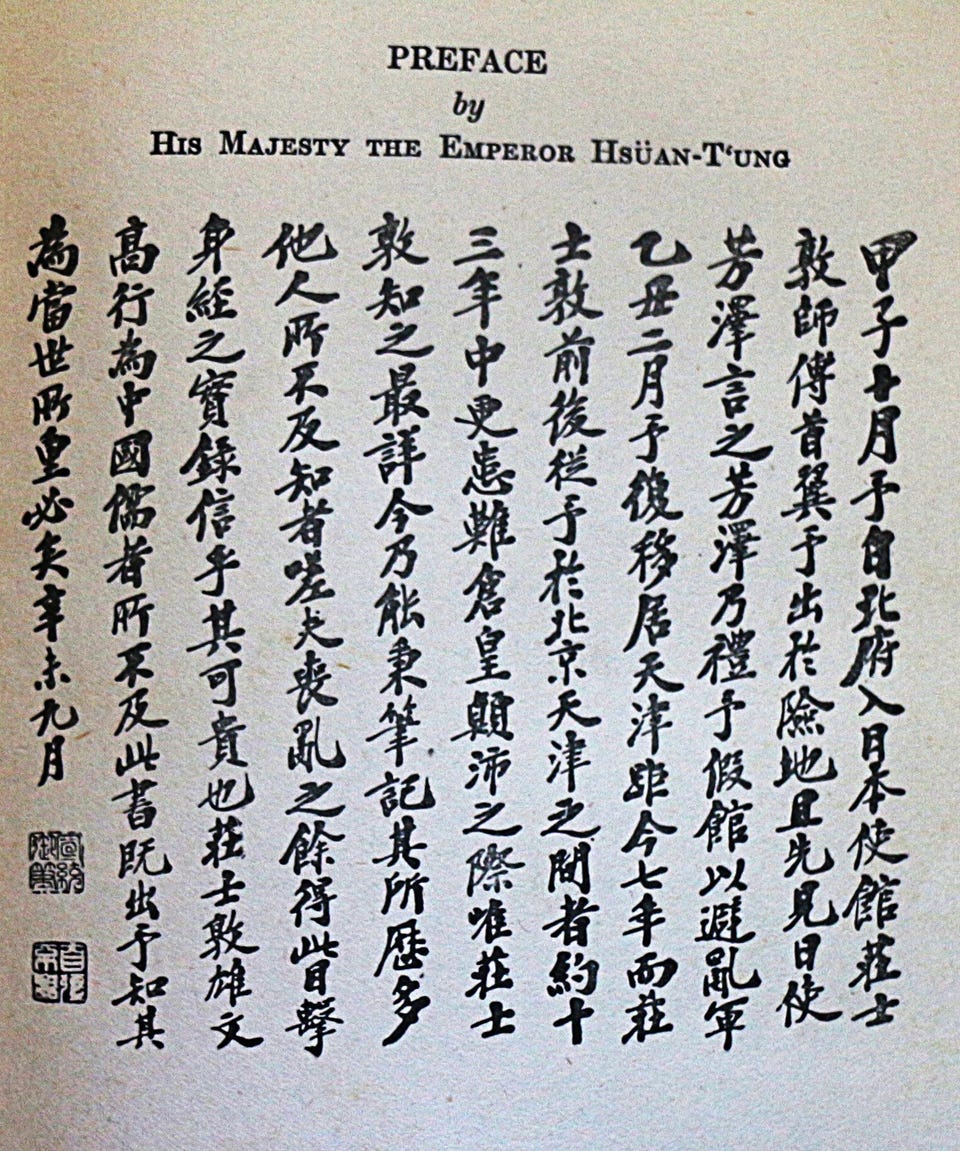 PREFACE
by
HIS MAJESTY THE EMPEROR HSÜAN-T‘UNG
甲子十月予自北府入日本使館莊士
敦師傅首翼予出於險地且先見日使
芳澤言之芳澤乃禮予假館以避亂軍
乙丑二月予復移居天津距今七年而莊
士敦前後從予於北京天津之間者約十
三年中更患難倉皇顛沛之際唯莊士
敦知之最詳今乃能秉筆記其所歷多
他人所不及知者嗟夫喪亂之餘得此目擊
身經之實錄信乎其可貴也莊士敦雄文
高行為中國儒者所不及此書既出予知其
為當世所重必矣辛未九月
宣統御筆